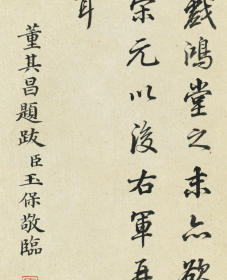 戲鴻堂之末亦欲
宋元以後右軍再
耳
董其昌題跋臣玉保敬臨